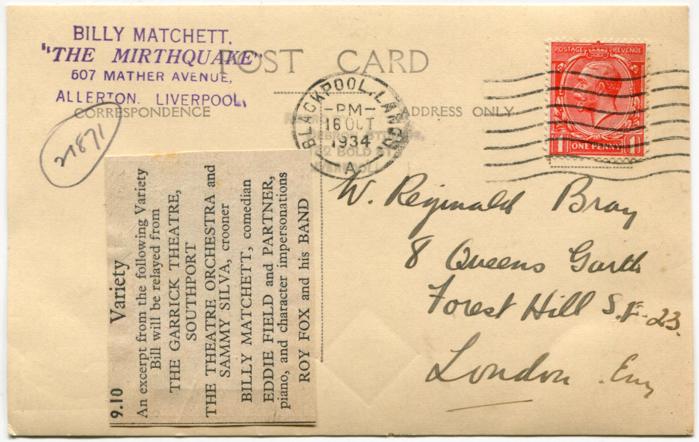 BILLY MATCHETT.
"THE MIRTHQUAKE"
607 MATHER AVENUE,
ALLERTON, LIVERPOOL,
POST CARD
CORRESPONDENCE
ADDRESS ONLY
21871
BLACKPOOL, LANCS
-PM-
16 OCT
1934
A
POSTAGE REVENUE
1 ONE PENNY 1
W. Reginald Bray
8 Queens Garth
Forest Hill S.E-23.
London. Eng
9.10 Variety
An excerpt from the following Variety
Bill will be relayed from
THE GARRICK THEATRE,
SOUTHPORT
THE THEATRE ORCHESTRA and
SAMMY SILVA, crooner
BILLY MATCHETT, comedian
EDDIE FIELD and PARTNER,
piano, and character impersonations
ROY FOX and his BAND